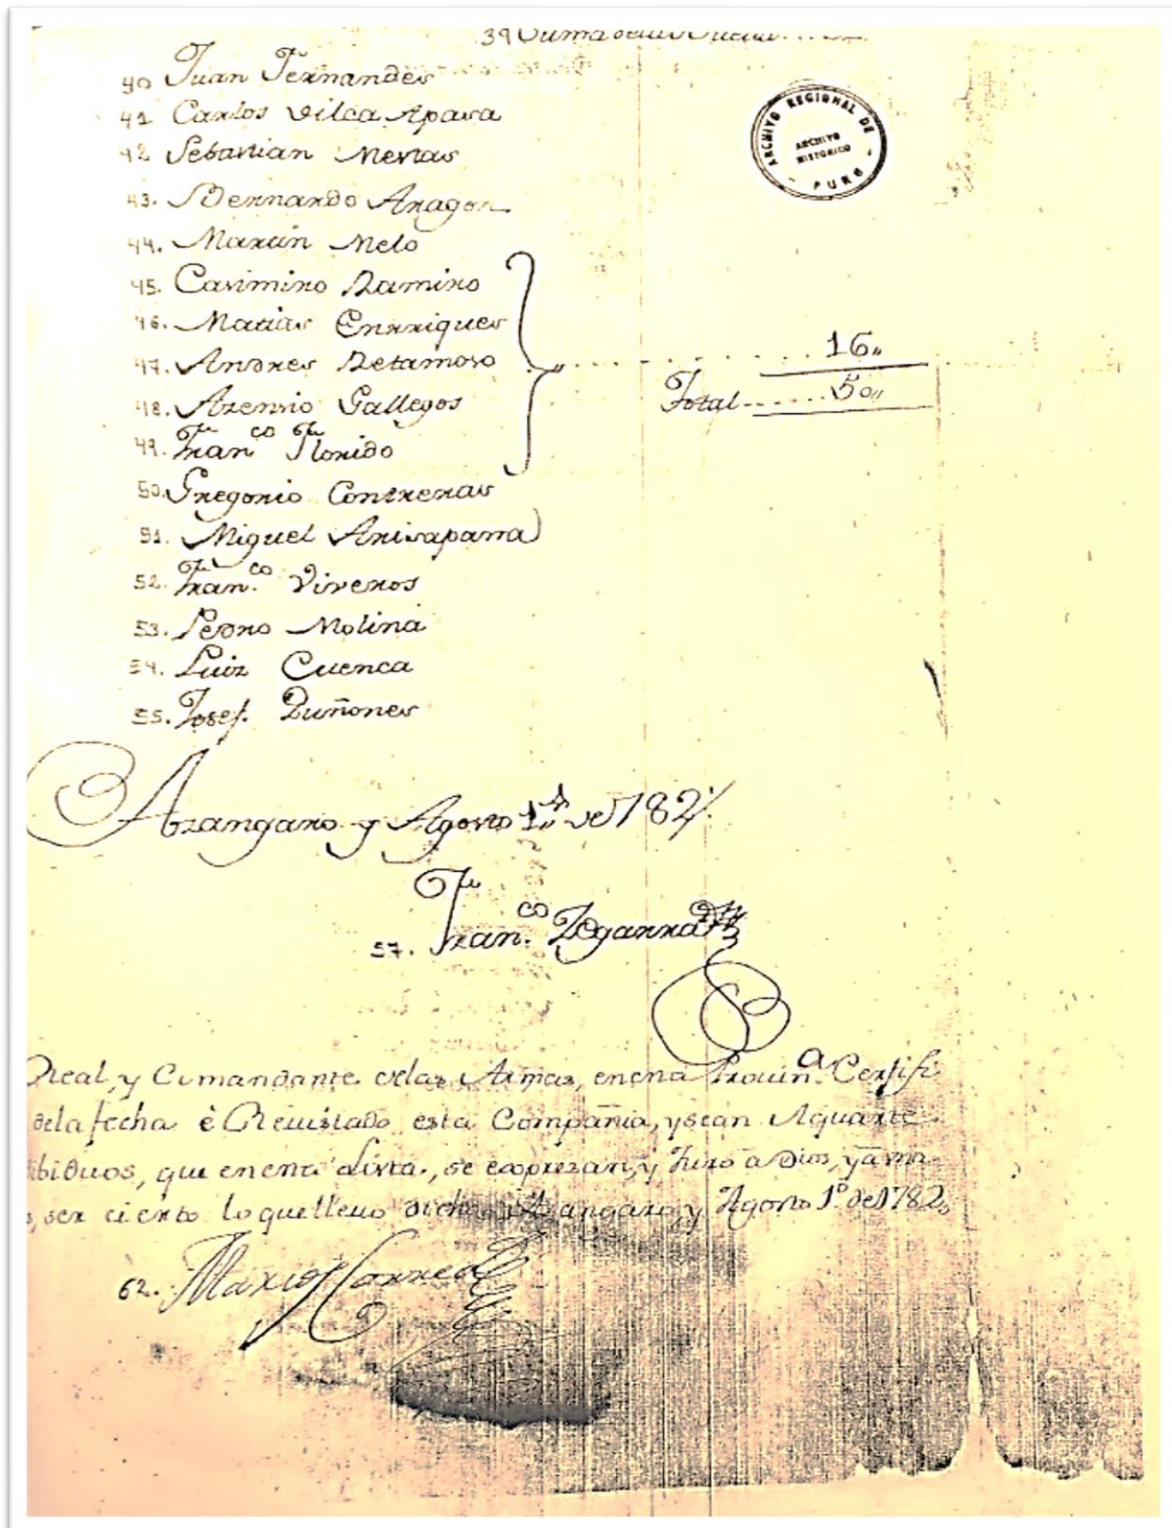 39 Suma
40 Juan Fernandes
41 Carlos Vilca Apasa
42 Sebastian Mestas
43. Bernardo Aragon
44. Martin Melo
45. Casimiro Ramiro
46. Matias Enrriques
47. Andres Retamoso
48. Arsenio Gallegos
49. Fran.co Florido
50. Gregorio Contreras
51. Miguel Arisaparra
52. Fran.co Viveros
53. Pedro Molina
54. Luiz Cuenca
55. Josef. Quiñones
16,,
Total ...... 50,,
ARCHIVO REGIONAL DE PUNO
ARCHIVO HISTORICO
Azangaro y Agosto 1,, de 782
57. Fran.co
Real, y Comandante delas Armas, en esta Provin.a Certifi
dela fecha è Revistado esta Compañia, y estan Aquarte
ibiduos, que en esta Lista, se expresan, y Juro a Dios, y a
ser cierto lo que llevo dicho Azangaro, y Agosto 1.º de 1782,,
62. Correa